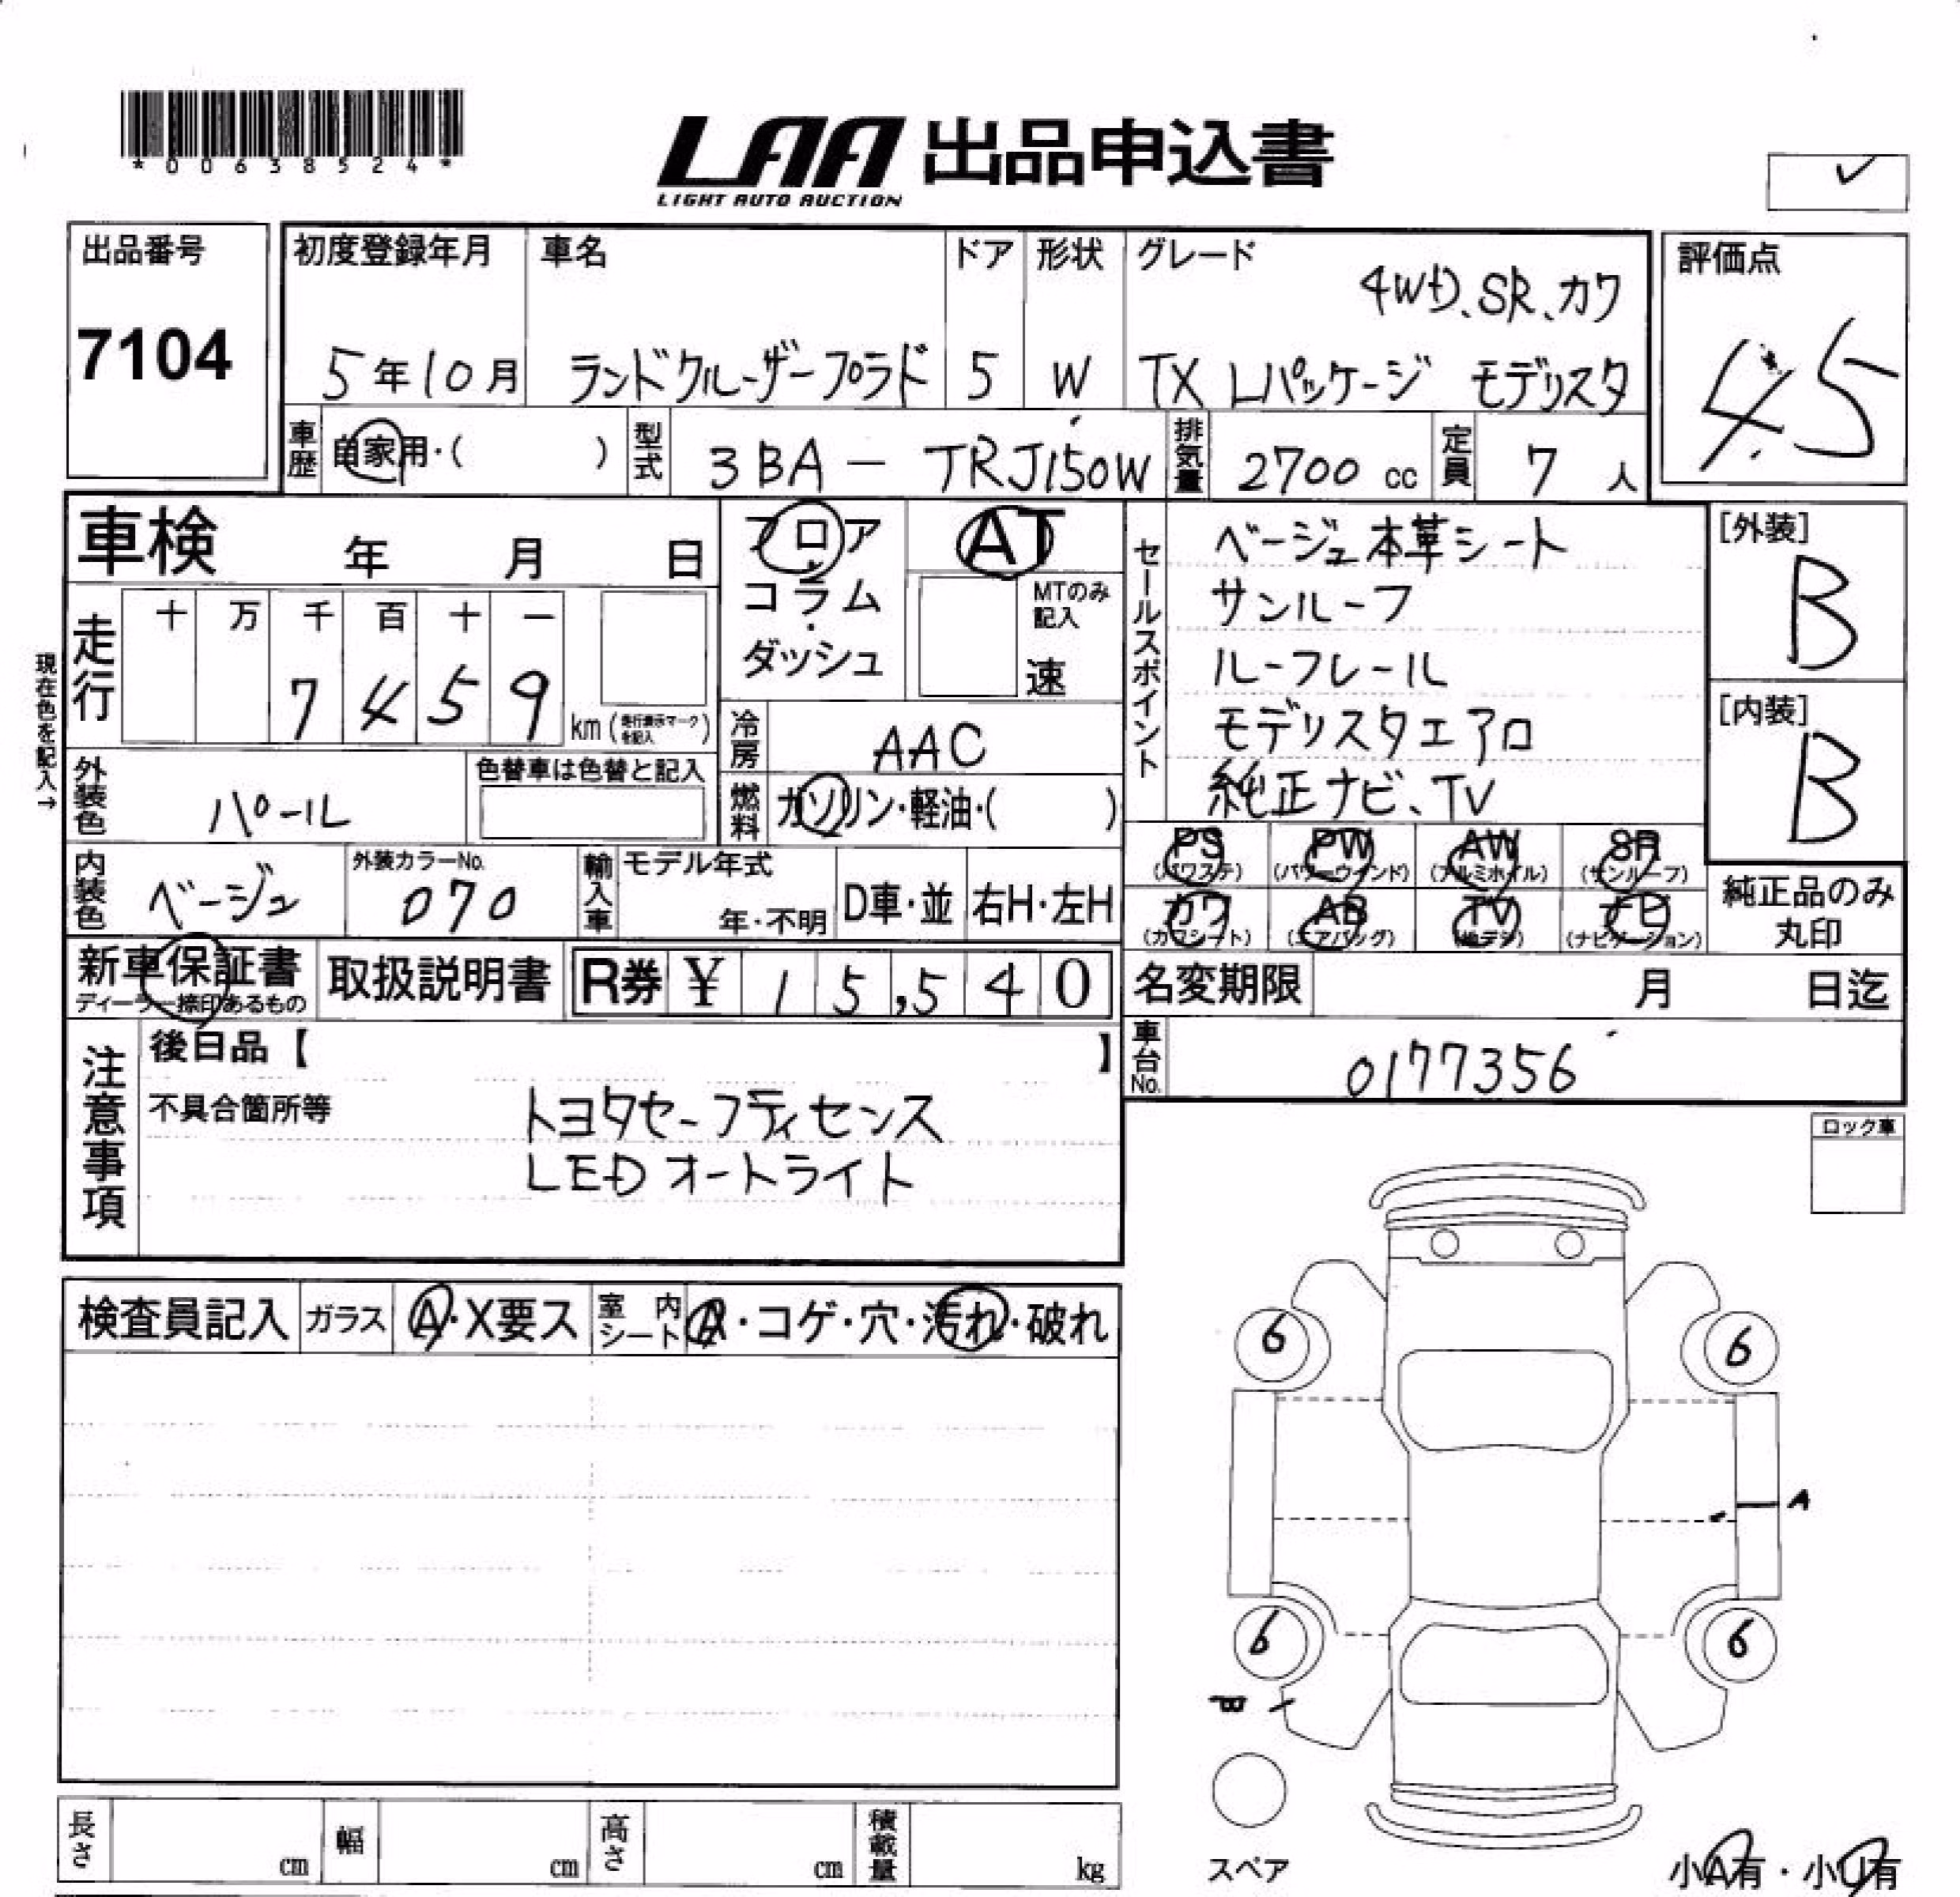 *00638524*
LAA 出品申込書
LIGHT AUTO AUCTION
出品番号
7104
初度登録年月
5年10月
車名
ランドクルーザープラド
ドア
5
形状
W
グレード
4WD、SR、カワ
TX Lパッケージ モデリスタ
評価点
4.5
車歴
自家用・( )
型式
3BA - TRJ150W
排気量
2700 cc
定員
7 人
車検 年 月 日
フロア
コラム
ダッシュ
AT
MTのみ記入
速
走行
十 万 千 百 十 一
7 4 5 9 km (走行表示マークを記入)
現在色を記入→
外装色
パール
色替車は色替と記入
冷房
AAC
燃料
ガソリン・軽油・( )
内装色
ベージュ
外装カラーNo.
070
輸入車
モデル年式
年・不明
D車・並
右H・左H
セールスポイント
ベージュ本革シート
サンルーフ
ルーフレール
モデリスタエアロ
純正ナビ、TV
[外装]
B
[内装]
B
PS (パワステ)
PW (パワーウインド)
AW (アルミホイル)
SR (サンルーフ)
カワ (カワシート)
AB (エアバッグ)
TV (地デジ)
ナビ (ナビゲーション)
純正品のみ
丸印
新車保証書
ディーラー捺印あるもの
取扱説明書
R券 ¥ 15,540
名変期限 月 日迄
車台No.
0177356
注意事項
後日品【 】
不具合箇所等
トヨタセーフティセンス
LEDオートライト
ロック車
検査員記入
ガラス
A・X要ス
室内シート
A・コゲ・穴・汚れ・破れ
6
6
A
6
6
スペア
小A有・小U有
長さ cm
幅 cm
高さ cm
積載量 kg